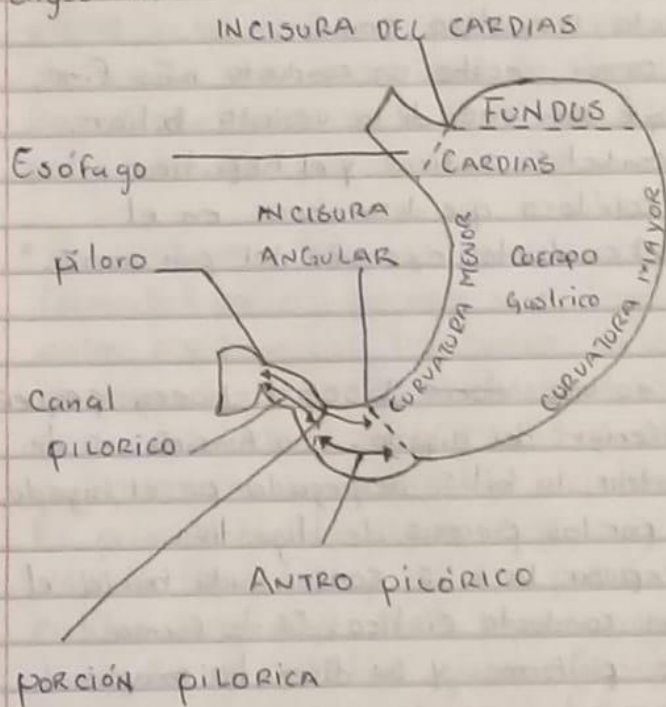 INCISURA DEL CARDIAS
FUNDUS
Esófago
CARDIAS
INCISURA
ANGULAR
píloro
CURVATURA MENOR
CUERPO
Gástrico
CURVATURA MAYOR
Canal
PILORICO
ANTRO PILÓRICO
PORCIÓN PILORICA